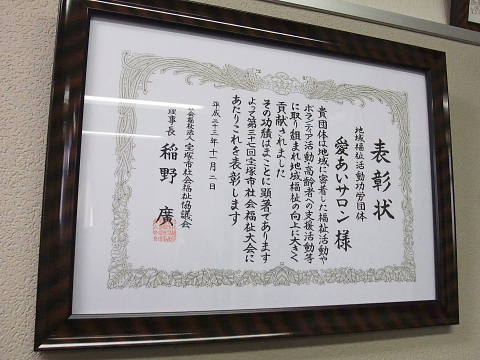 表彰状
地域福祉活動功労団体
愛あいサロン様
貴団体は地域に密着した福祉活動や
ボランティア活動・高齢者への支援活動等
に取り組まれ地域福祉の向上に大きく
貢献されました
その功績はまことに顕著であります
よって第三十七回宝塚市社会福祉大会に
あたりこれを表彰します
平成二十三年十一月二日
社会福祉法人 宝塚市社会福祉協議会
理事長 稲野 廣